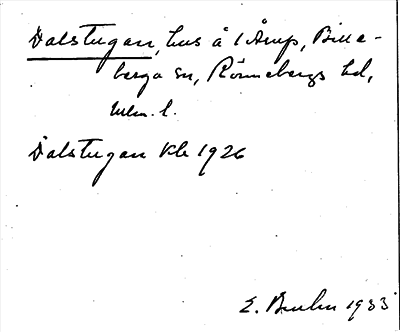 Dalstugan, hus å 1 Årup, Bille-
berga sn, Rönnebergs hd,
Mlm. l.
Dalstugan Kb 1926
E. Bruhn 1933